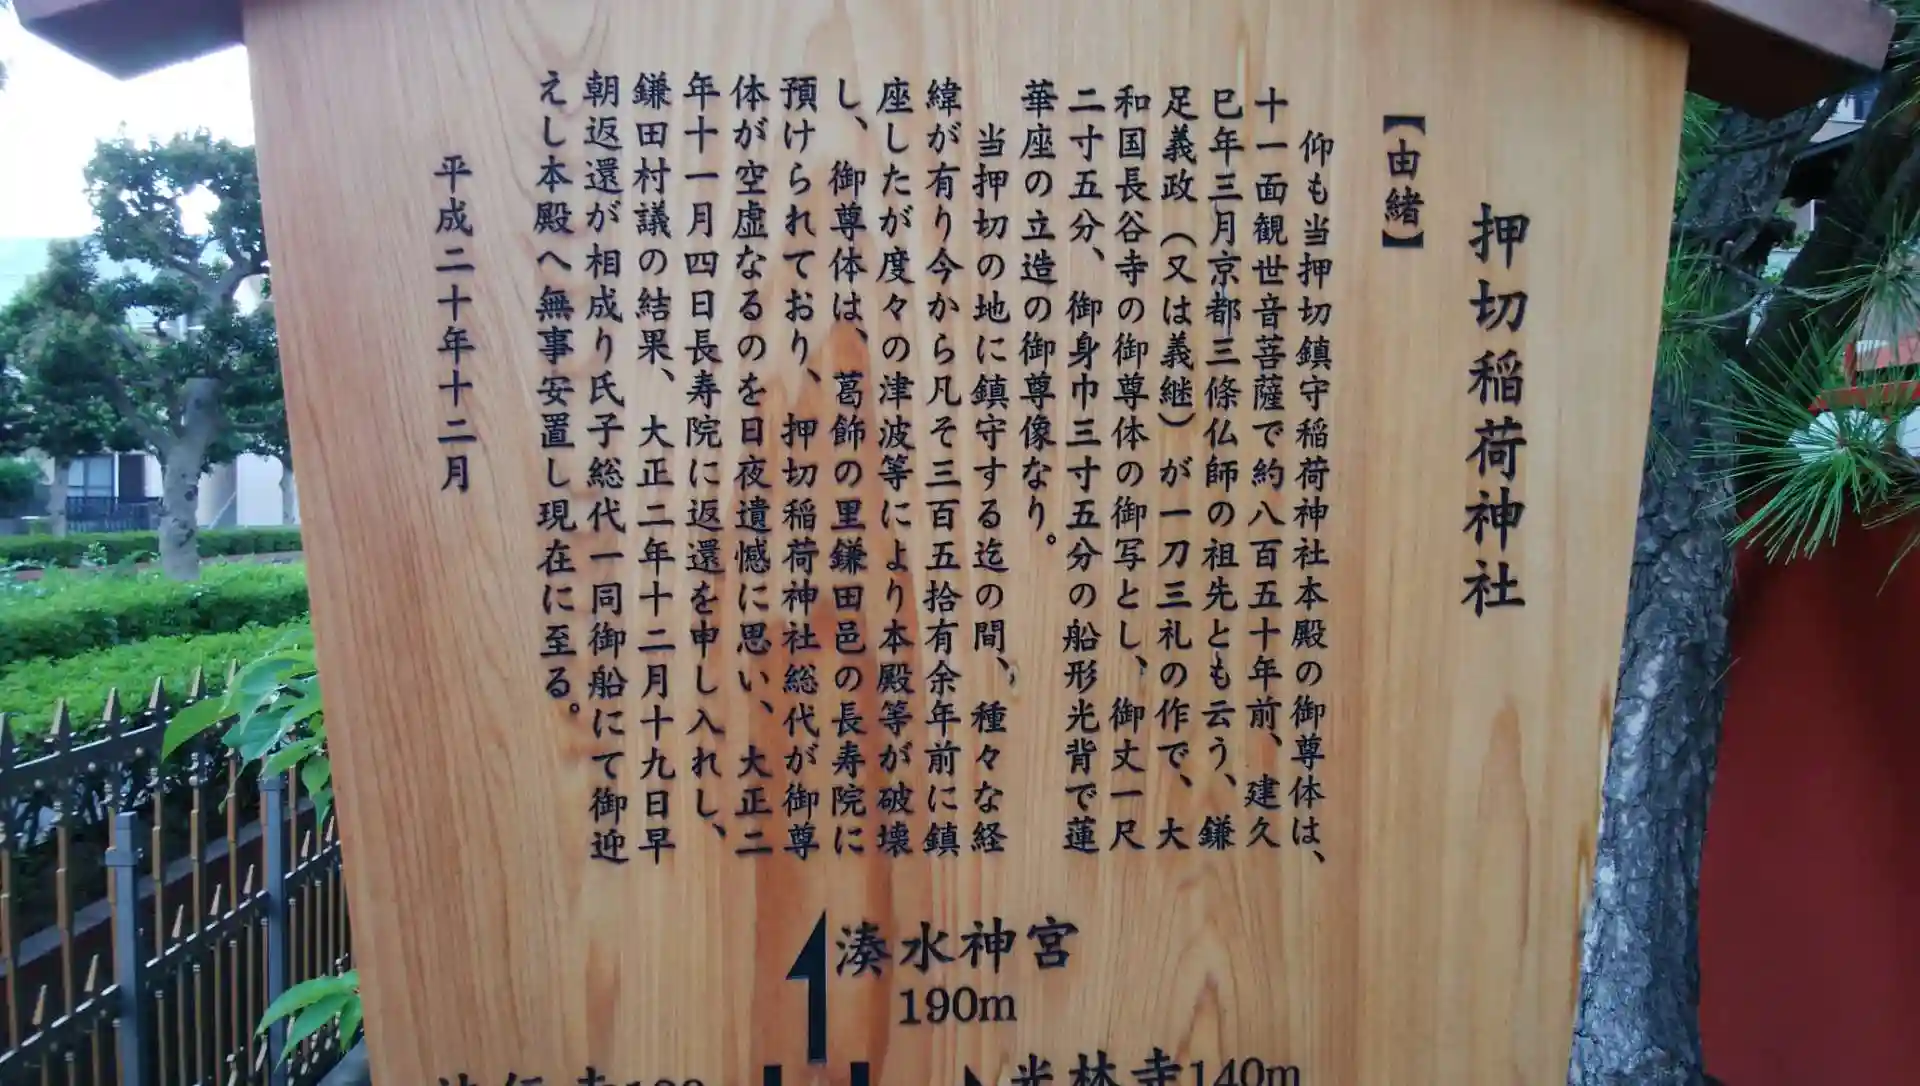 押切稲荷神社
【由緒】
仰も当押切鎮守稲荷神社本殿の御尊体は、
十一面観世音菩薩で約八百五十年前、建久
巳年三月京都三條仏師の祖先とも云う、鎌
足義政（又は義継）が一刀三礼の作で、大
和国長谷寺の御尊体の御写とし、御丈一尺
二寸五分、御身巾三寸五分の船形光背で蓮
華座の立造の御尊像なり。
当押切の地に鎮守する迄の間、種々な経
緯が有り今から凡そ三百五拾有余年前に鎮
座したが度々の津波等により本殿等が破壊
し、御尊体は、葛飾の里鎌田邑の長寿院に
預けられており、押切稲荷神社総代が御尊
体が空虚なるのを日夜遺憾に思い、大正二
年十一月四日長寿院に返還を申し入れし、
鎌田村議の結果、大正二年十二月十九日早
朝返還が相成り氏子総代一同御船にて御迎
えし本殿へ無事安置し現在に至る。
平成二十年十二月
湊水神宮
190m
光林寺140m